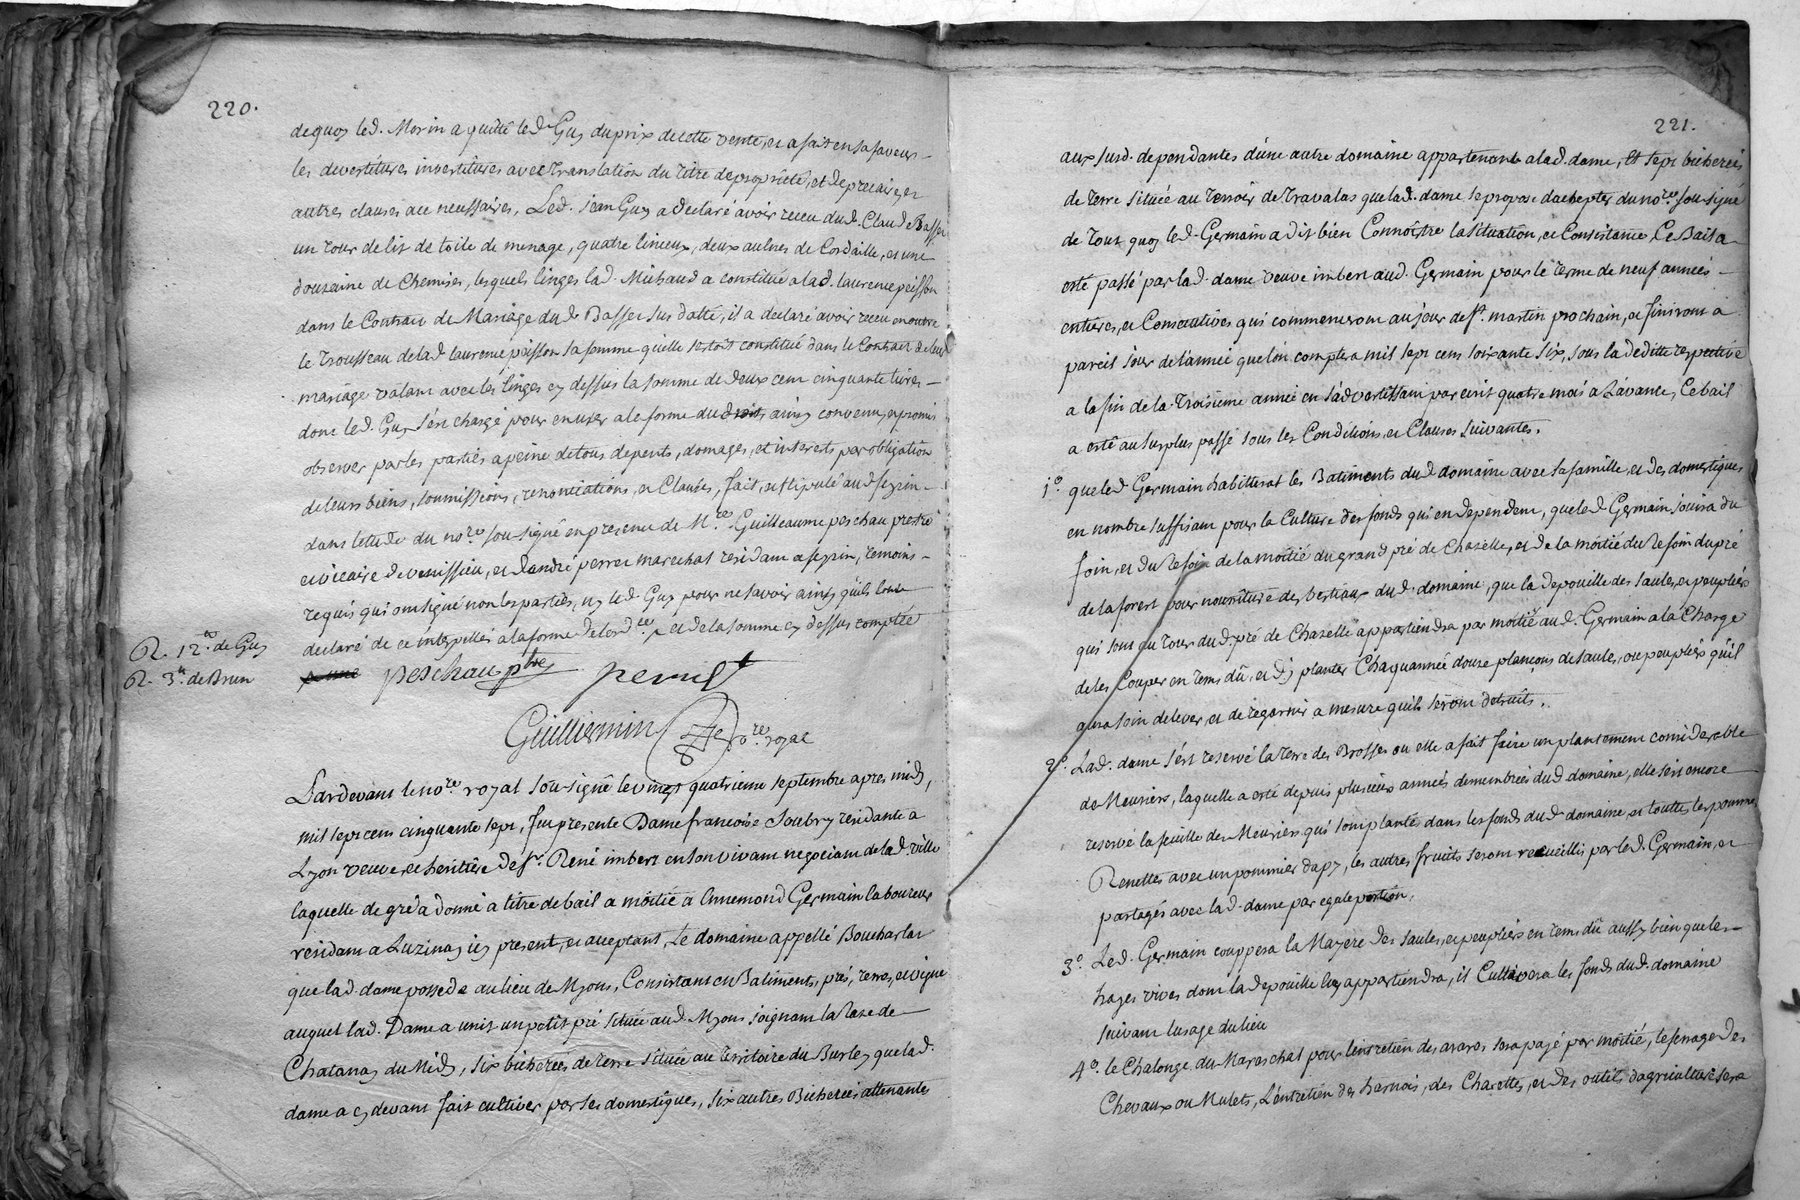 220.
de quoy led. Morin a quitté led. Guy du prix de cette vente, et a fait en sa faveur
les devestitures investitures avec translation du titre de propriété, et de precaire, et
autres clauses a ce necessaires, Led. Jean Guy a declaré avoir receu dud. Claude Basset
un tour de lit de toile de menage, quatre linceux, deux aulnes de Cordaille, et une
douzaine de Chemises, lesquels linges lad. Michaud a constitué a lad. laurence poisson
dans le Contract de Mariage dud. Basset susdatté, il a declaré avoir receu en outre
le trousseau de lad. laurence poisson sa femme quelle sestoit constitué dans le Contract de leur
mariage valant avec les linges cy dessus la somme de deux cent cinquante livres
dont led. Guy s'est chargé pour en user a la forme du droit, ainsy convenu, et promis
observer par les parties a peine de tous depents, domages, et interests par obligation
de leurs biens, soumissions, renonciations, et Clauses, fait, et stipulé aud. feyzin
dans letude du nore. sousigné en presence de Mre. Guilleaume peschau prestre
et vicaire de venissieu, et d'andré perret marechal residant a feyzin, temoins
requis qui ont signé non les parties, ny led. Guy pour ne savoir ainsy quils l'ont
declaré de ce interpellés a la forme de lordce. et de la somme cy dessus comptée
R. 12to. de Guy
R. 3tt. de Brun
peschau ptre perret
Guilliermin Nore. royal
Pardevant le nore. royal sousigné le vingt quatrieme septembre apres midy,
mil sept cens cinquante sept, fut presente Dame francoise Soubry residante a
Lyon veuve, et heritière de Sr. René imbert en son vivant negociant de lad. ville
laquelle de gré a donné a titre de bail a moitié a Annemond Germain laboureur
residant a Luzinay icy present, et acceptant, Le domaine appellé Boucharlat
que lad. dame possede au lieu de Myons, Consistant en Batiments, prés, terres, et vigne
auquel lad. Dame a unit un petit pré située aud. Myons joignant la Raze de
Chatanay du Midy, six bicherées de terre située au territoire du Burley que lad.
dame a cy devant fait cultiver par ses domestiques, six autres Bicherées attenantes
221.
aux susd. dependantes d'une autre domaine appartenante a lad. dame, Et sept bicherées
de terre située au terroir de Travalas que lad. dame se propose d'achepter du nore. sousigné
de tout quoy led. Germain a dit bien Connoistre la situation, et Consistance, Ce Bail a
esté passé par lad. dame veuve imbert aud. Germain pour le terme de neuf années
entieres, et Consecutives qui commenceront au jour de St. martin prochain, et finiront a
pareil jour de l'année que lon comptera mil sept cens soixante six, sous la deditte respective
a la fin de la troisieme année en s'advertissant par ecrit quatre mois a L'avance, Ce bail
a esté au surplus passé sous les Conditions, et Clauses suivantes.
1o. que led. Germain habitterat les Batiments dud. domaine avec sa famille, et des domestiques
en nombre suffisant pour la Culture des fonds qui en dependent, que led. Germain jouira du
foin, et du Refoin de la moitié du grand pré de Chazelle, et de la moitié du Refoin du pré
de la forest pour nourriture des bestiaux dud. domaine, que la depouille des saules, et peupliers
qui sont au tour dud. pré de Chazelle appartiendra par moitié aud. Germain a la Charge
de les Couper en tems dû, et d'y planter Chaqu'année douze plançons de saules, ou peupliers qu'il
aura soin delever, et de regarnir a mesure quils seront detruits.
2o. Lad. dame s'est reservé la terre des Brosses ou elle a fait faire un plantement considerable
de Meuriers, laquelle a esté depuis plusieurs années demembrée dud. domaine, elle s'est encore
reservé la feuille des Meuriers qui sont plantés dans les fonds dud. domaine, et toutes les pommes
Renettes avec un pommier dapy, les autres fruits seront recueillis par led. Germain, et
partagés avec lad. dame par egale portion.
3o. Led. Germain couppera la Mayere des saules, et peupliers en tems dû aussy bien que les
hayes vives dont la depouille luy appartiendra, il Cultivera les fonds dud. domaine
suivant lusage du lieu
4o. le Chalonge du Mareschal pour l'entretien des araros sera payé par moitié, le ferrage des
Chevaux ou Mulets, L'entretien des harnois, des Charettes, et des outils d'agriculture sera